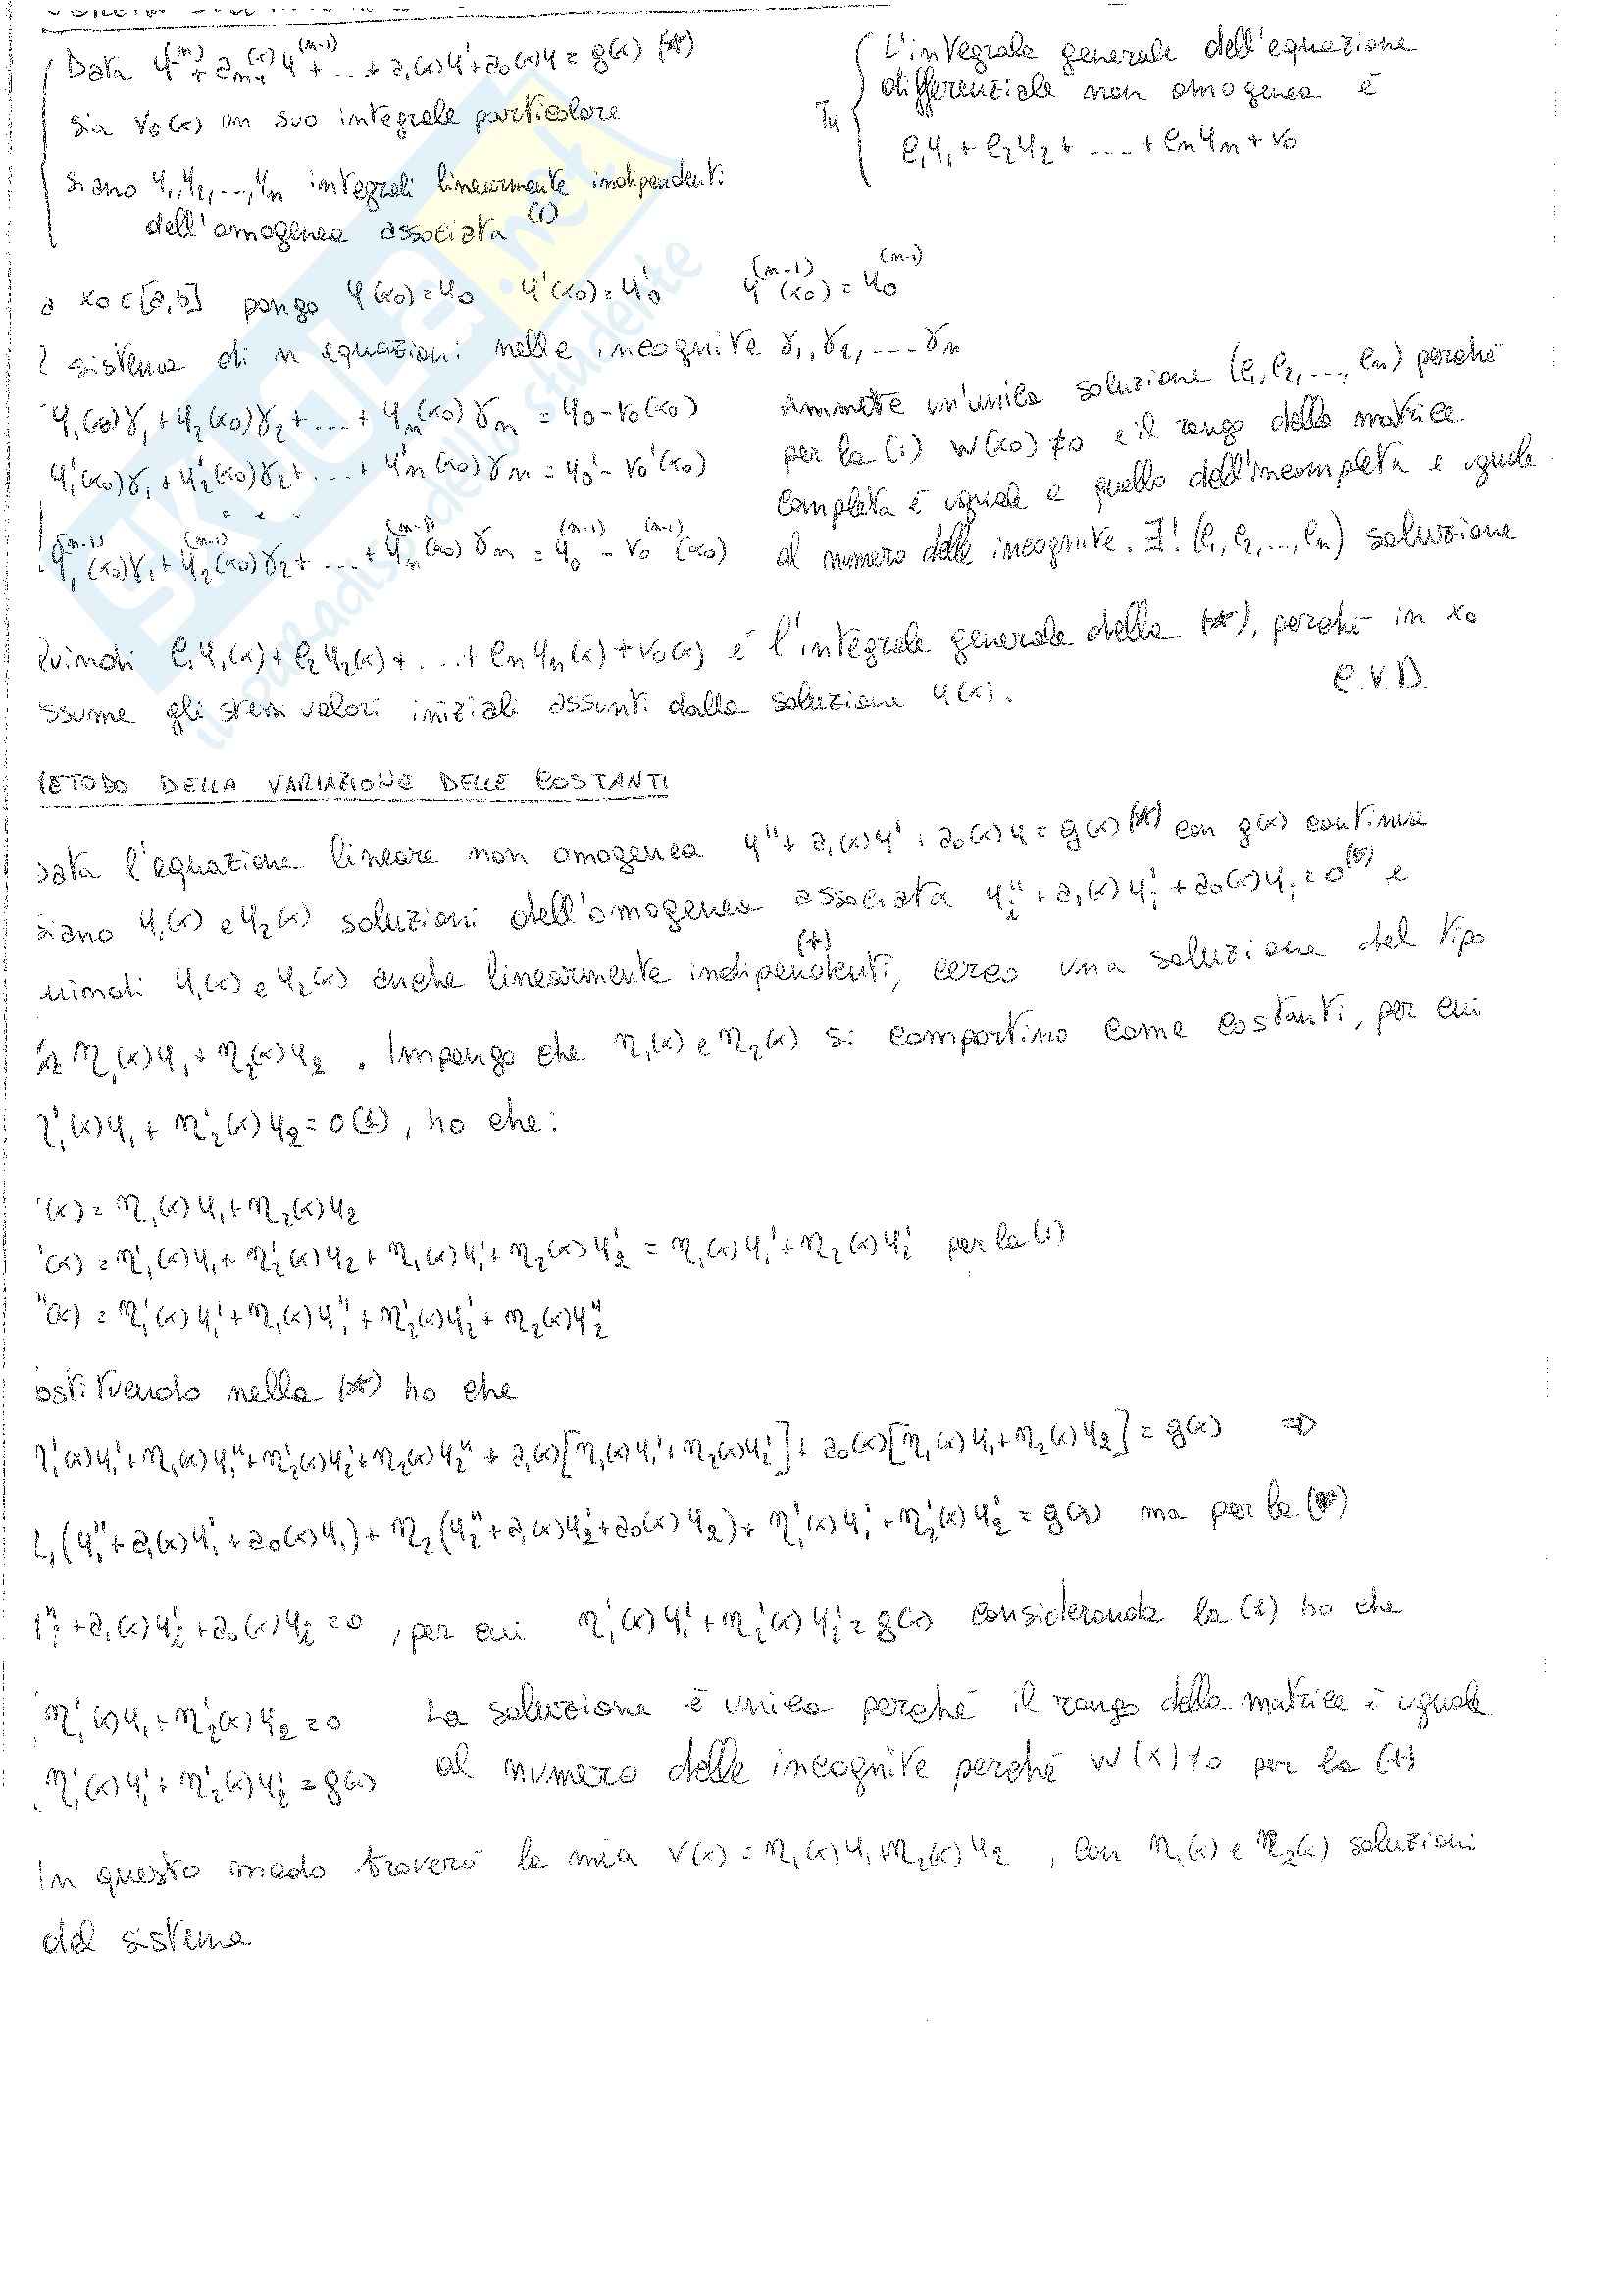 Data y⁽ⁿ⁾ + aₙ₋₁(x) y⁽ⁿ⁻¹⁾ + ... + a₁(x)y' + a₀(x)y = g(x) (*)
sia v₀(x) un suo integrale particolare
siano y₁, y₂, ..., yₙ integrali linearmente indipendenti
dell'omogenea associata (1)
TH
L'integrale generale dell'equazione
differenziale non omogenea è
c₁y₁ + c₂y₂ + .... + cₙyₙ + v₀
x₀ ∈ [a,b] pongo y(x₀) = y₀ y'(x₀) = y'₀ y⁽ⁿ⁻¹⁾(x₀) = y₀⁽ⁿ⁻¹⁾
sistema di n equazioni nelle incognite γ₁, γ₂, .... γₙ
y₁(x₀)γ₁ + y₂(x₀)γ₂ + ... + yₙ(x₀)γₙ = y₀ - v₀(x₀)
y'₁(x₀)γ₁ + y'₂(x₀)γ₂ + ... + y'ₙ(x₀)γₙ = y₀' - v₀'(x₀)
...
y₁⁽ⁿ⁻¹⁾(x₀)γ₁ + y₂⁽ⁿ⁻¹⁾(x₀)γ₂ + ... + yₙ⁽ⁿ⁻¹⁾(x₀)γₙ = y₀⁽ⁿ⁻¹⁾ - v₀⁽ⁿ⁻¹⁾(x₀)
ammette un'unica soluzione (c₁, c₂, ..., cₙ) perché
per la (1) W(x₀) ≠ 0 e il rango della matrice
completa è uguale a quello dell'incompleta e uguale
al numero delle incognite. ∃! (c₁, c₂, ..., cₙ) soluzione
Quindi c₁y₁(x) + c₂y₂(x) + ... + cₙyₙ(x) + v₀(x) è l'integrale generale della (*), perché in x₀
ssume gli stessi valori iniziali assunti dalla soluzione y(x).
C.V.D.
METODO DELLA VARIAZIONE DELLE COSTANTI
Data l'equazione lineare non omogenea y'' + a₁(x)y' + a₀(x)y = g(x) (*) con g(x) continua
siano y₁(x) e y₂(x) soluzioni dell'omogenea associata yᵢ'' + a₁(x)yᵢ' + a₀(x)yᵢ = 0 e
quindi y₁(x) e y₂(x) anche linearmente indipendenti (+), cerco una soluzione del tipo
η₁(x)y₁ + η₂(x)y₂. Impongo che η₁(x) e η₂(x) si comportino come costanti, per cui
η'₁(x)y₁ + η'₂(x)y₂ = 0 (1), ho che:
(x) = η₁(x)y₁ + η₂(x)y₂
'(x) = η'₁(x)y₁ + η'₂(x)y₂ + η₁(x)y₁' + η₂(x)y₂' = η₁(x)y₁' + η₂(x)y₂' per la (1)
''(x) = η'₁(x)y₁' + η₁(x)y₁'' + η'₂(x)y₂' + η₂(x)y₂''
ostituendo nella (*) ho che
η'₁(x)y₁' + η₁(x)y₁'' + η'₂(x)y₂' + η₂(x)y₂'' + a₁(x)[η₁(x)y₁' + η₂(x)y₂'] + a₀(x)[η₁(x)y₁ + η₂(x)y₂] = g(x) ⇒
η₁(y₁'' + a₁(x)y₁' + a₀(x)y₁) + η₂(y₂'' + a₁(x)y₂' + a₀(x)y₂) + η'₁(x)y₁' + η'₂(x)y₂' = g(x) ma per la
yᵢ'' + a₁(x)yᵢ' + a₀(x)yᵢ = 0, per cui η'₁(x)y₁' + η'₂(x)y₂' = g(x) considerando la (1) ho che
η'₁(x)y₁ + η'₂(x)y₂ = 0 La soluzione è unica perché il rango della matrice è uguale
η'₁(x)y₁' + η'₂(x)y₂' = g(x) al numero delle incognite perché W(x) ≠ 0 per la (+)
In questo modo troverò la mia v(x) = η₁(x)y₁ + η₂(x)y₂, con η₁(x) e η₂(x) soluzioni
del sistema